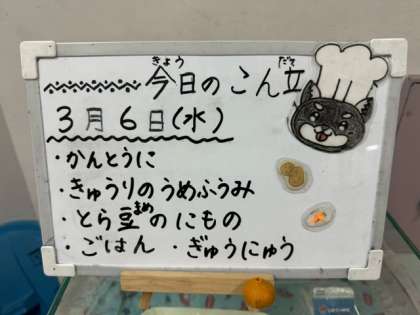 今日のこん立
きょう
だて
3月6日(水)
・かんとうに
・きゅうりのうめふうみ
・とら豆のにもの
まめ
・ごはん ・ぎゅうにゅう